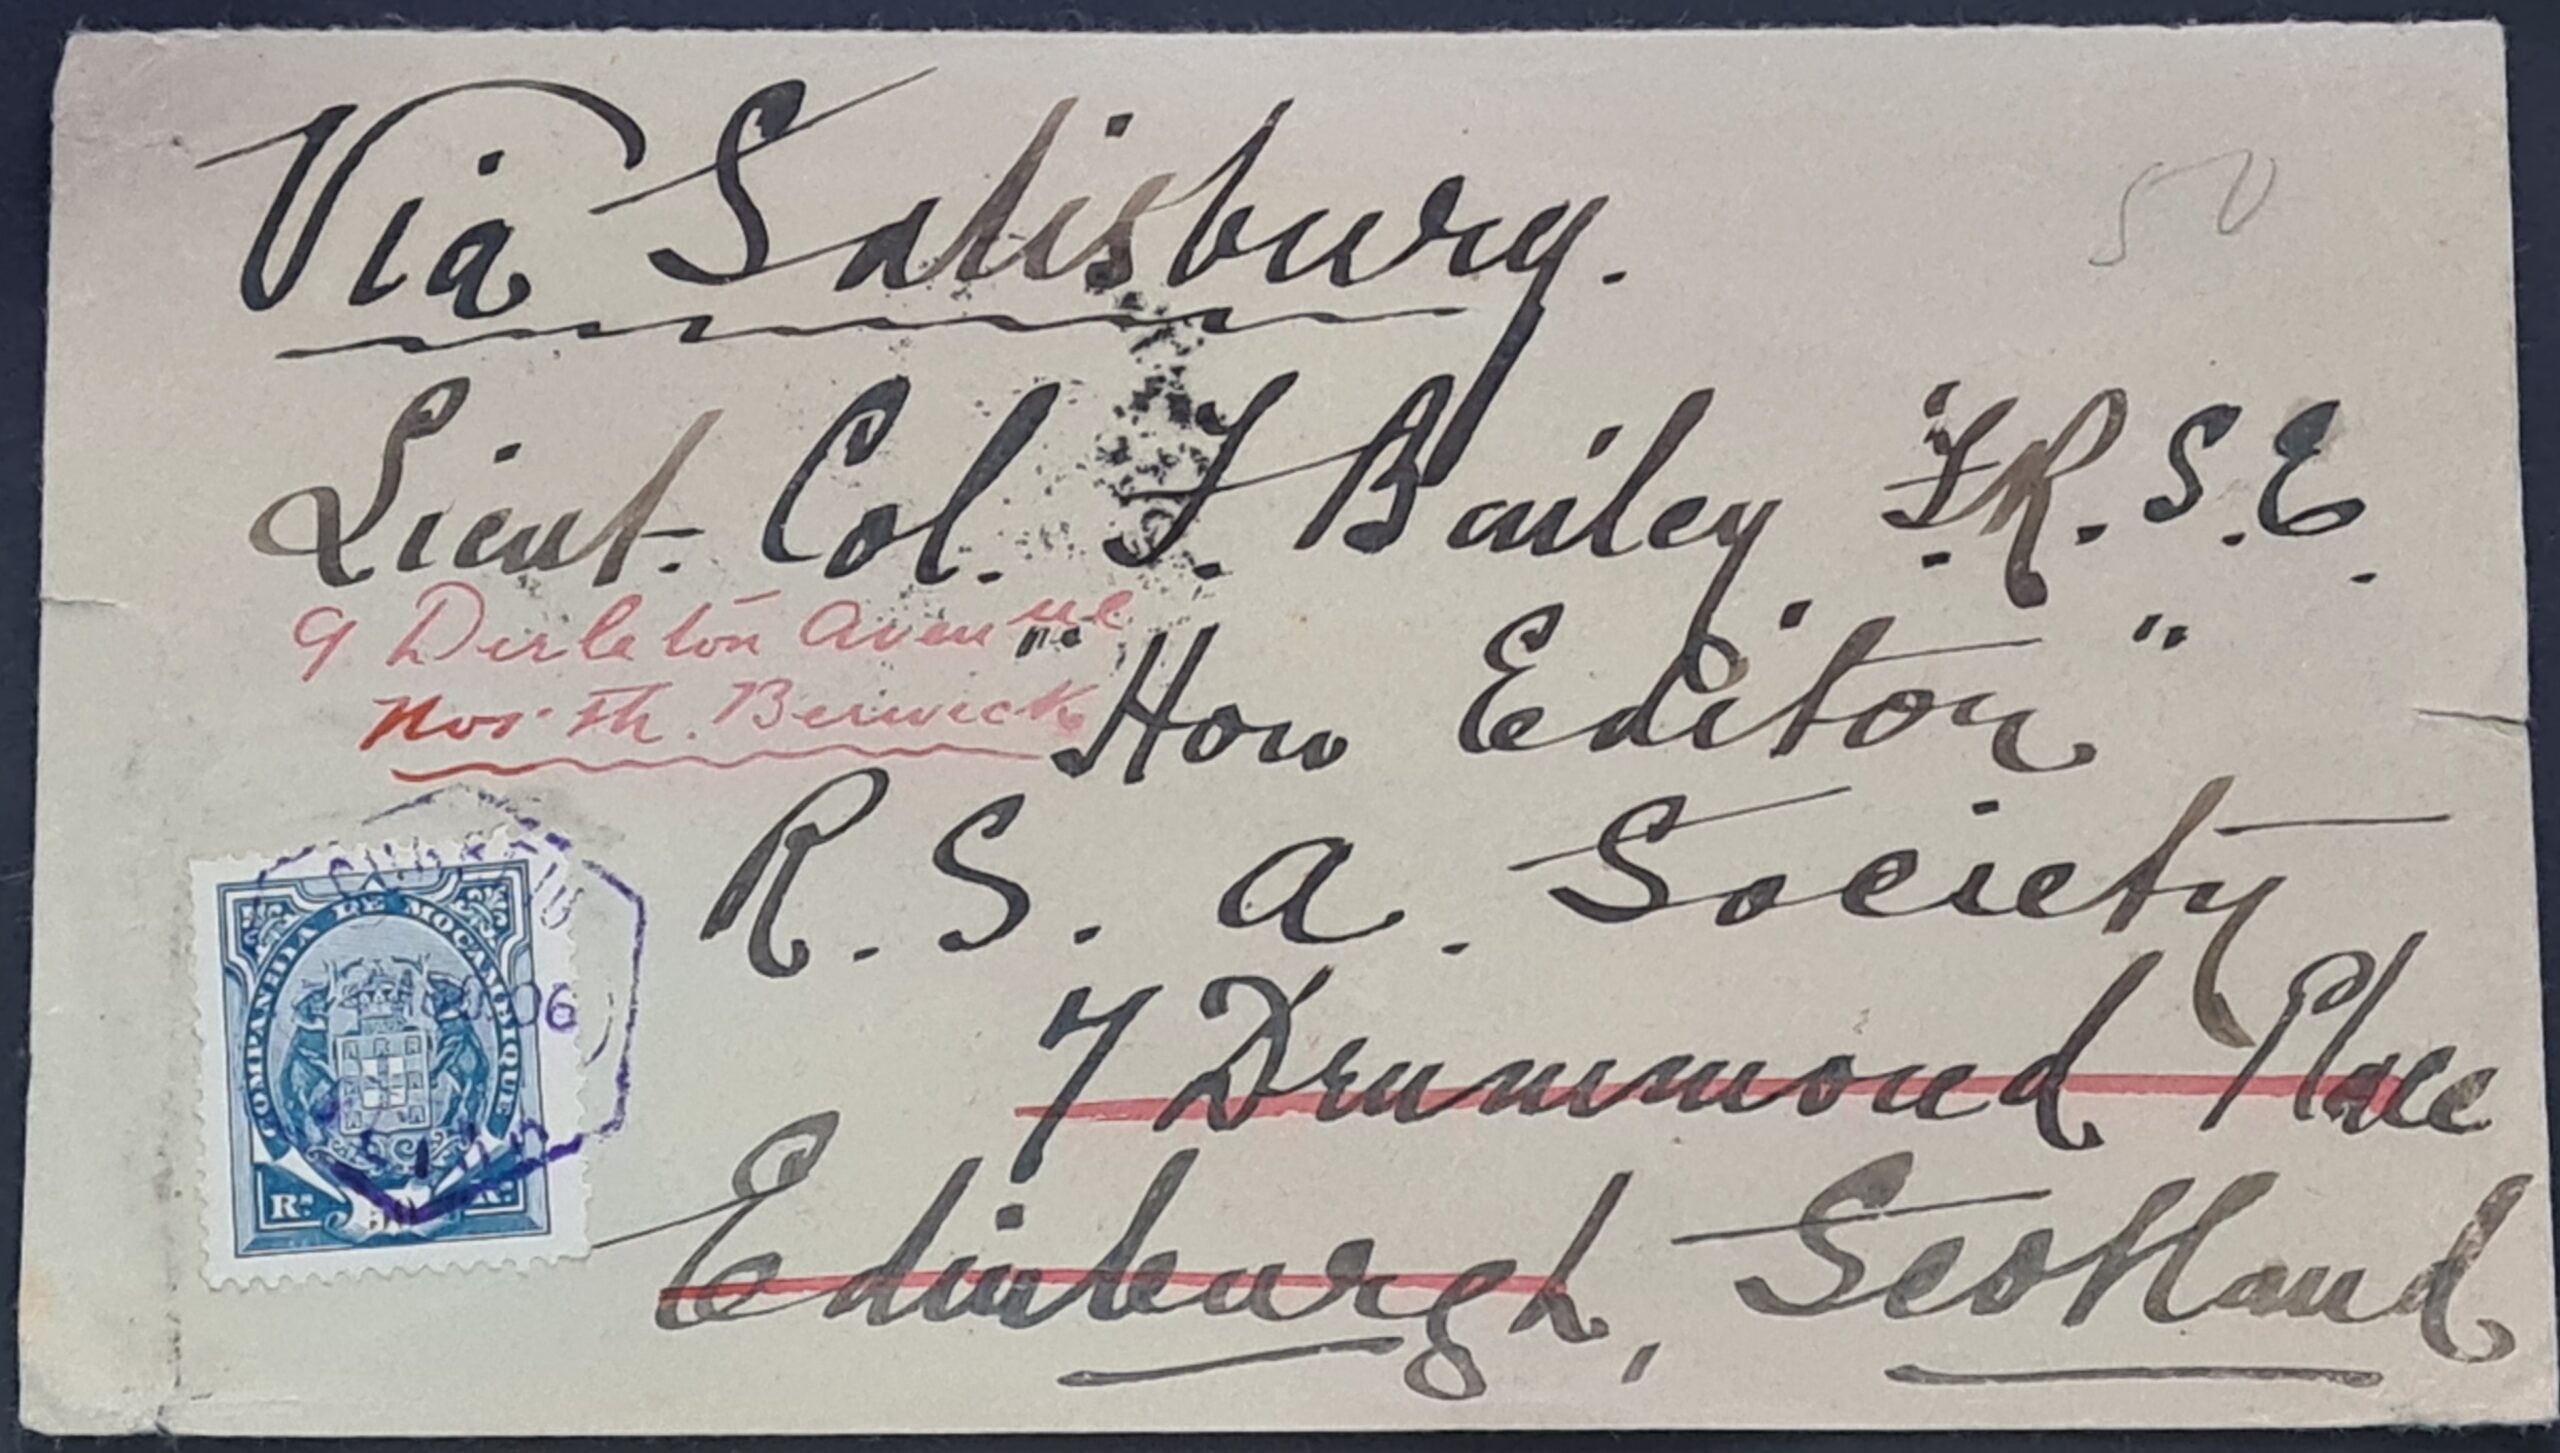 Via Salisbury.
50
Lieut. Col. F. Bailey F.R.S.E.
9 Dirleton Avenue
North. Berwick
"Hon Editor"
R. S. A. Society
7 Drummond Place
Edinburgh, Scotland
COMPANHIA DE MOÇAMBIQUE
06
Rs. 50